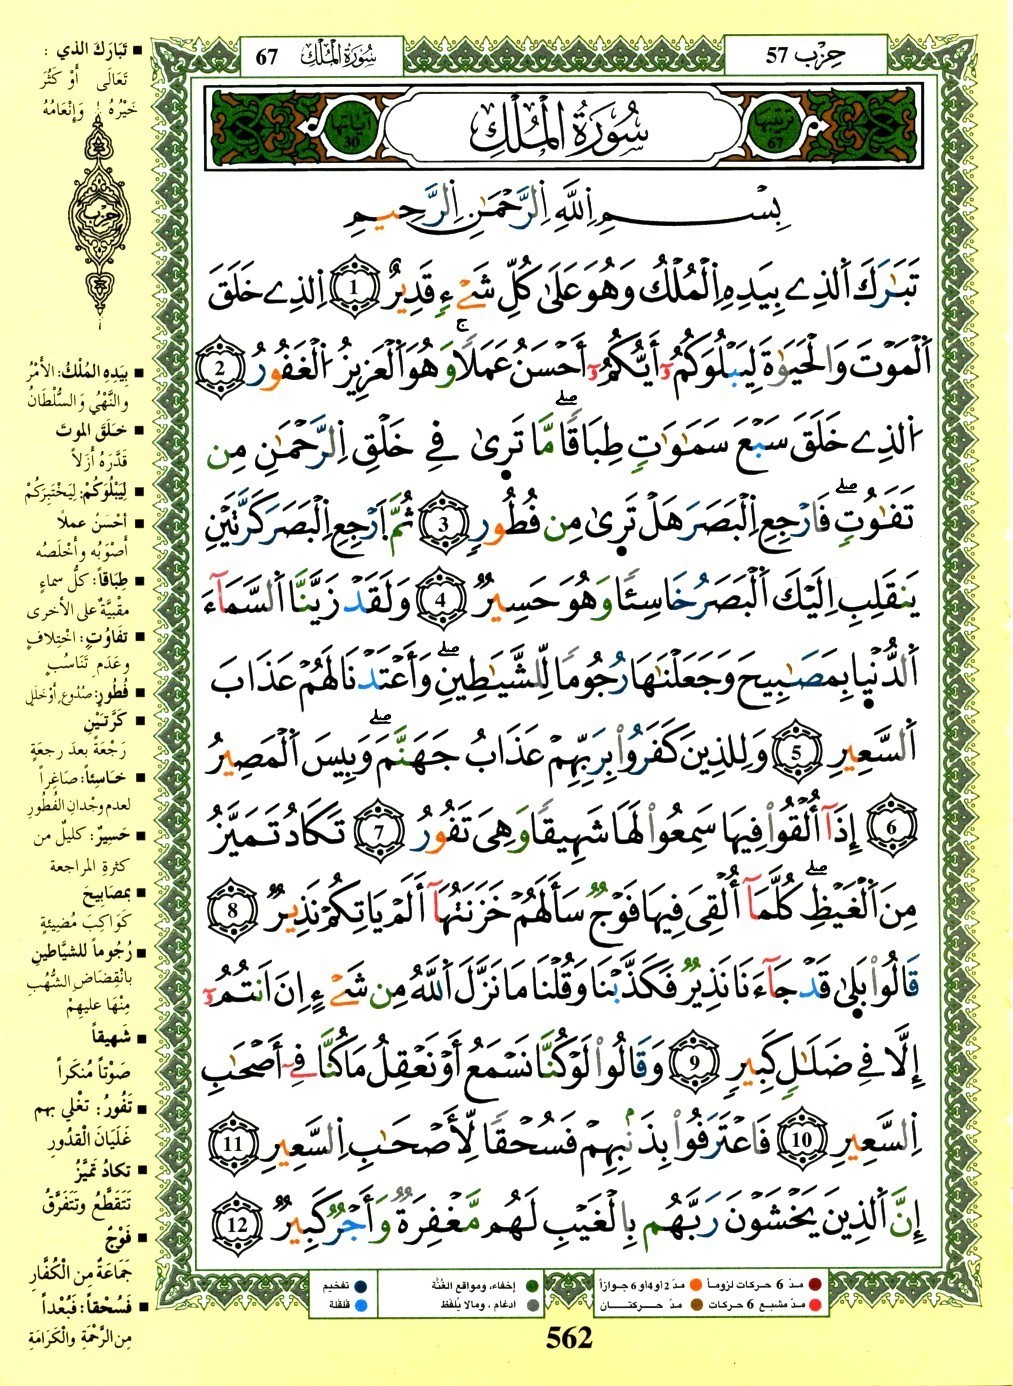 حِزْب 57
سُورَةُ الْمُلْكِ 67
ترتيبها 67
سُورَةُ الْمُلْكِ
آياتها 30
بِسْمِ اِ۬للَّهِ اِ۬لرَّحْمَٰنِ اِ۬لرَّحِيمِ
تَبَٰرَكَ اَ۬لذِے بِيَدِهِ اِ۬لْمُلْكُ وَهُوَ عَلَىٰ كُلِّ شَےْءٖ قَدِيرٌ 1 اِ۬لذِے خَلَقَ
اَ۬لْمَوْتَ وَالْحَيَوٰةَ لِيَبْلُوَكُمُۥٓ أَيُّكُمُۥٓ أَحْسَنُ عَمَلاٗۖ وَهُوَ اَ۬لْعَزِيزُ اُ۬لْغَفُورُ 2
اُ۬لذِے خَلَقَ سَبْعَ سَمَٰوَٰتٖ طِبَاقاٗۖ مَّا تَر۪ىٰ فِے خَلْقِ اِ۬لرَّحْمَٰنِ مِن
تَفَٰوُتٖۖ فَارْجِعِ اِ۬لْبَصَرَ هَلْ تَر۪ىٰ مِن فُطُورٖ 3 ثُمَّ اَ۪رْجِعِ اِ۬لْبَصَرَ كَرَّتَيْنِ
يَنقَلِبِ اِلَيْكَ اَ۬لْبَصَرُ خَاسِئاٗ وَهُوَ حَسِيرٌ 4 وَلَقَدْ زَيَّنَّا اَ۬لسَّمَآءَ
اَ۬لدُّنْي۪ا بِمَصَٰبِيحَ وَجَعَلْنَٰهَا رُجُوماٗ لِّلشَّيَٰطِينِۖ وَأَعْتَدْنَا لَهُمْ عَذَابَ
اَ۬لسَّعِيرِ 5 وَلِلذِينَ كَفَرُواْ بِرَبِّهِمْ عَذَابُ جَهَنَّمَۖ وَبِيسَ اَ۬لْمَصِيرُ
6 إِذَآ أُلْقُواْ فِيهَا سَمِعُواْ لَهَا شَهِيقاٗ وَهِيَ تَفُورُ 7 تَكَادُ تَمَيَّزُ
مِنَ اَ۬لْغَيْظِۖ كُلَّمَآ أُلْقِيَ فِيهَا فَوْجٞ سَأَلَهُمْ خَزَنَتُهَآ أَلَمْ يَاتِكُمْ نَذِيرٞ 8
قَالُواْ بَل۪ىٰ قَدْ جَآءَنَا نَذِيرٞ فَكَذَّبْنَا وَقُلْنَا مَا نَزَّلَ اَ۬للَّهُ مِن شَےْءٍ اِنَ اَنتُمُۥٓ
إِلَّا فِے ضَلَٰلٖ كَبِيرٖ 9 وَقَالُواْ لَوْ كُنَّا نَسْمَعُ أَوْ نَعْقِلُ مَا كُنَّا فِےٓ أَصْحَٰبِ
اِ۬لسَّعِيرِ 10 فَاعْتَرَفُواْ بِذَنۢبِهِمْ فَسُحْقاٗ لِّأَصْحَٰبِ اِ۬لسَّعِيرِ 11
إِنَّ اَ۬لذِينَ يَخْشَوْنَ رَبَّهُم بِالْغَيْبِ لَهُم مَّغْفِرَةٞ وَأَجْرٞ كَبِيرٞ 12
■ تَبَارَكَ الذي :
تَعَالَى أَوْ كَثُرَ
خَيْرُهُ وَإِنْعَامُهُ
حِزْب
■ بِيَدِهِ المُلْكُ: الأَمْرُ
والنَّهْيُ وَالسُّلْطَانُ
■ خَلَقَ الموتَ
قَدَّرَهُ أَزَلاً
■ لِيَبْلُوَكُمْ: لِيَخْتَبِرَكُمْ
■ أحْسَنُ عملًا
أَصْوَبُه وأَخْلَصُه
■ طِبَاقاً: كلُّ سماءٍ
مقبيَّةٌ على الأخرى
■ تفَاوُتٍ: اخْتِلافٍ
وعَدَمِ تَنَاسُبٍ
■ فُطُورٍ: صُدُوعٍ أوْ خَلَلٍ
■ كَرَّتَيْنِ
رَجْعَةً بعد رجعةٍ
■ خاسِئاً: صَاغِراً
لعدم وِجْدانِ الفُطُورِ
■ حَسِيرٌ: كليلٌ من
كثرةِ المراجعة
■ بمصابيحَ
كَوَاكِبَ مُضِيئةٍ
■ رُجُوماً للشيَّاطين
بانْقِضَاضِ الشُّهُبِ
مِنْهَا عليهِمْ
■ شَهيقاً
صَوْتاً مُنكَراً
■ تَفُورُ: تغْلي بهم
غَلَيَانَ الْقدُورِ
■ تكادُ تَمَيَّزُ
تَتَقَطَّعُ وتَتَفَرَّقُ
■ فَوْجٌ
جَمَاعَةٌ مِنَ الْكُفَّارِ
■ فَسُحْقاً: فَبُعْداً
مِنَ الرَّحْمَةِ والْكَرَامَةِ
مدّ 6 حركات لزوماً مدّ 2 أو 4 أو 6 جوازاً
مدّ مشبع 6 حركات مدّ حركتــان
إخفاء، ومواقع الغُنَّة
ادغام، ومالا يُلفَظ
تفخيم
قلقلة
562